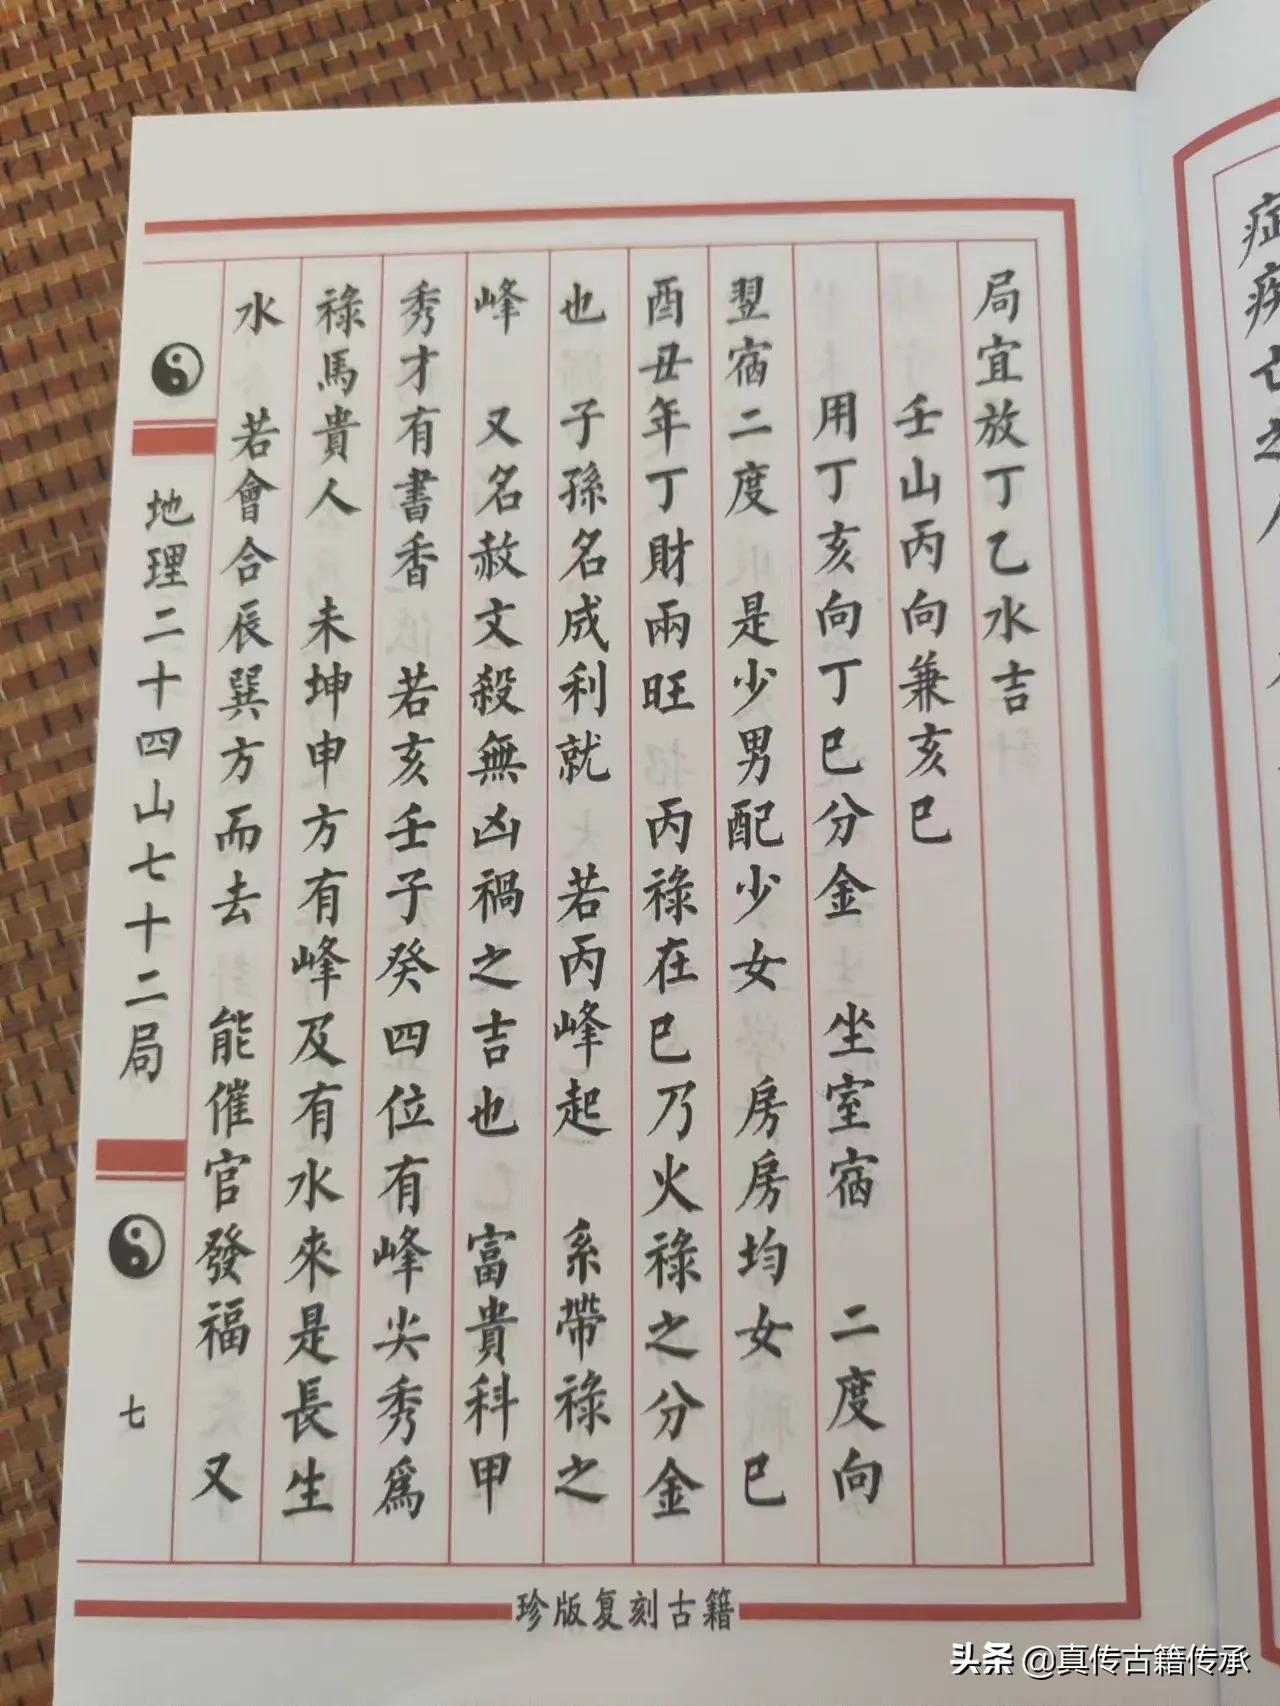 局宜放丁乙水吉
壬山丙向兼亥巳
用丁亥向丁巳分金 坐室宿 二度向
翌宿二度 是少男配少女 房房均女 巳
酉丑年丁財兩旺 丙祿在巳乃火祿之分金
也子孫名成利就 若丙峰起 系帶祿之
峰 又名赦文殺無凶禍之吉也 富貴科甲
秀才有書香 若亥壬子癸四位有峰尖秀為
祿馬貴人 未坤申方有峰及有水來是長生
水 若會合辰巽方而去 能催官發福 又
地理二十四山七十二局
七
珍版复刻古籍
头条 @真传古籍传承